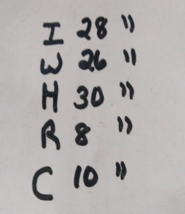 I 28 "
W 26 "
H 30 "
R 8 "
C 10 "